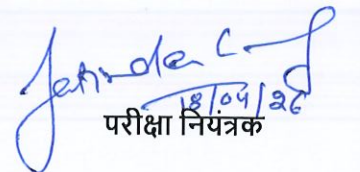 18/04/26
परीक्षा नियंत्रक